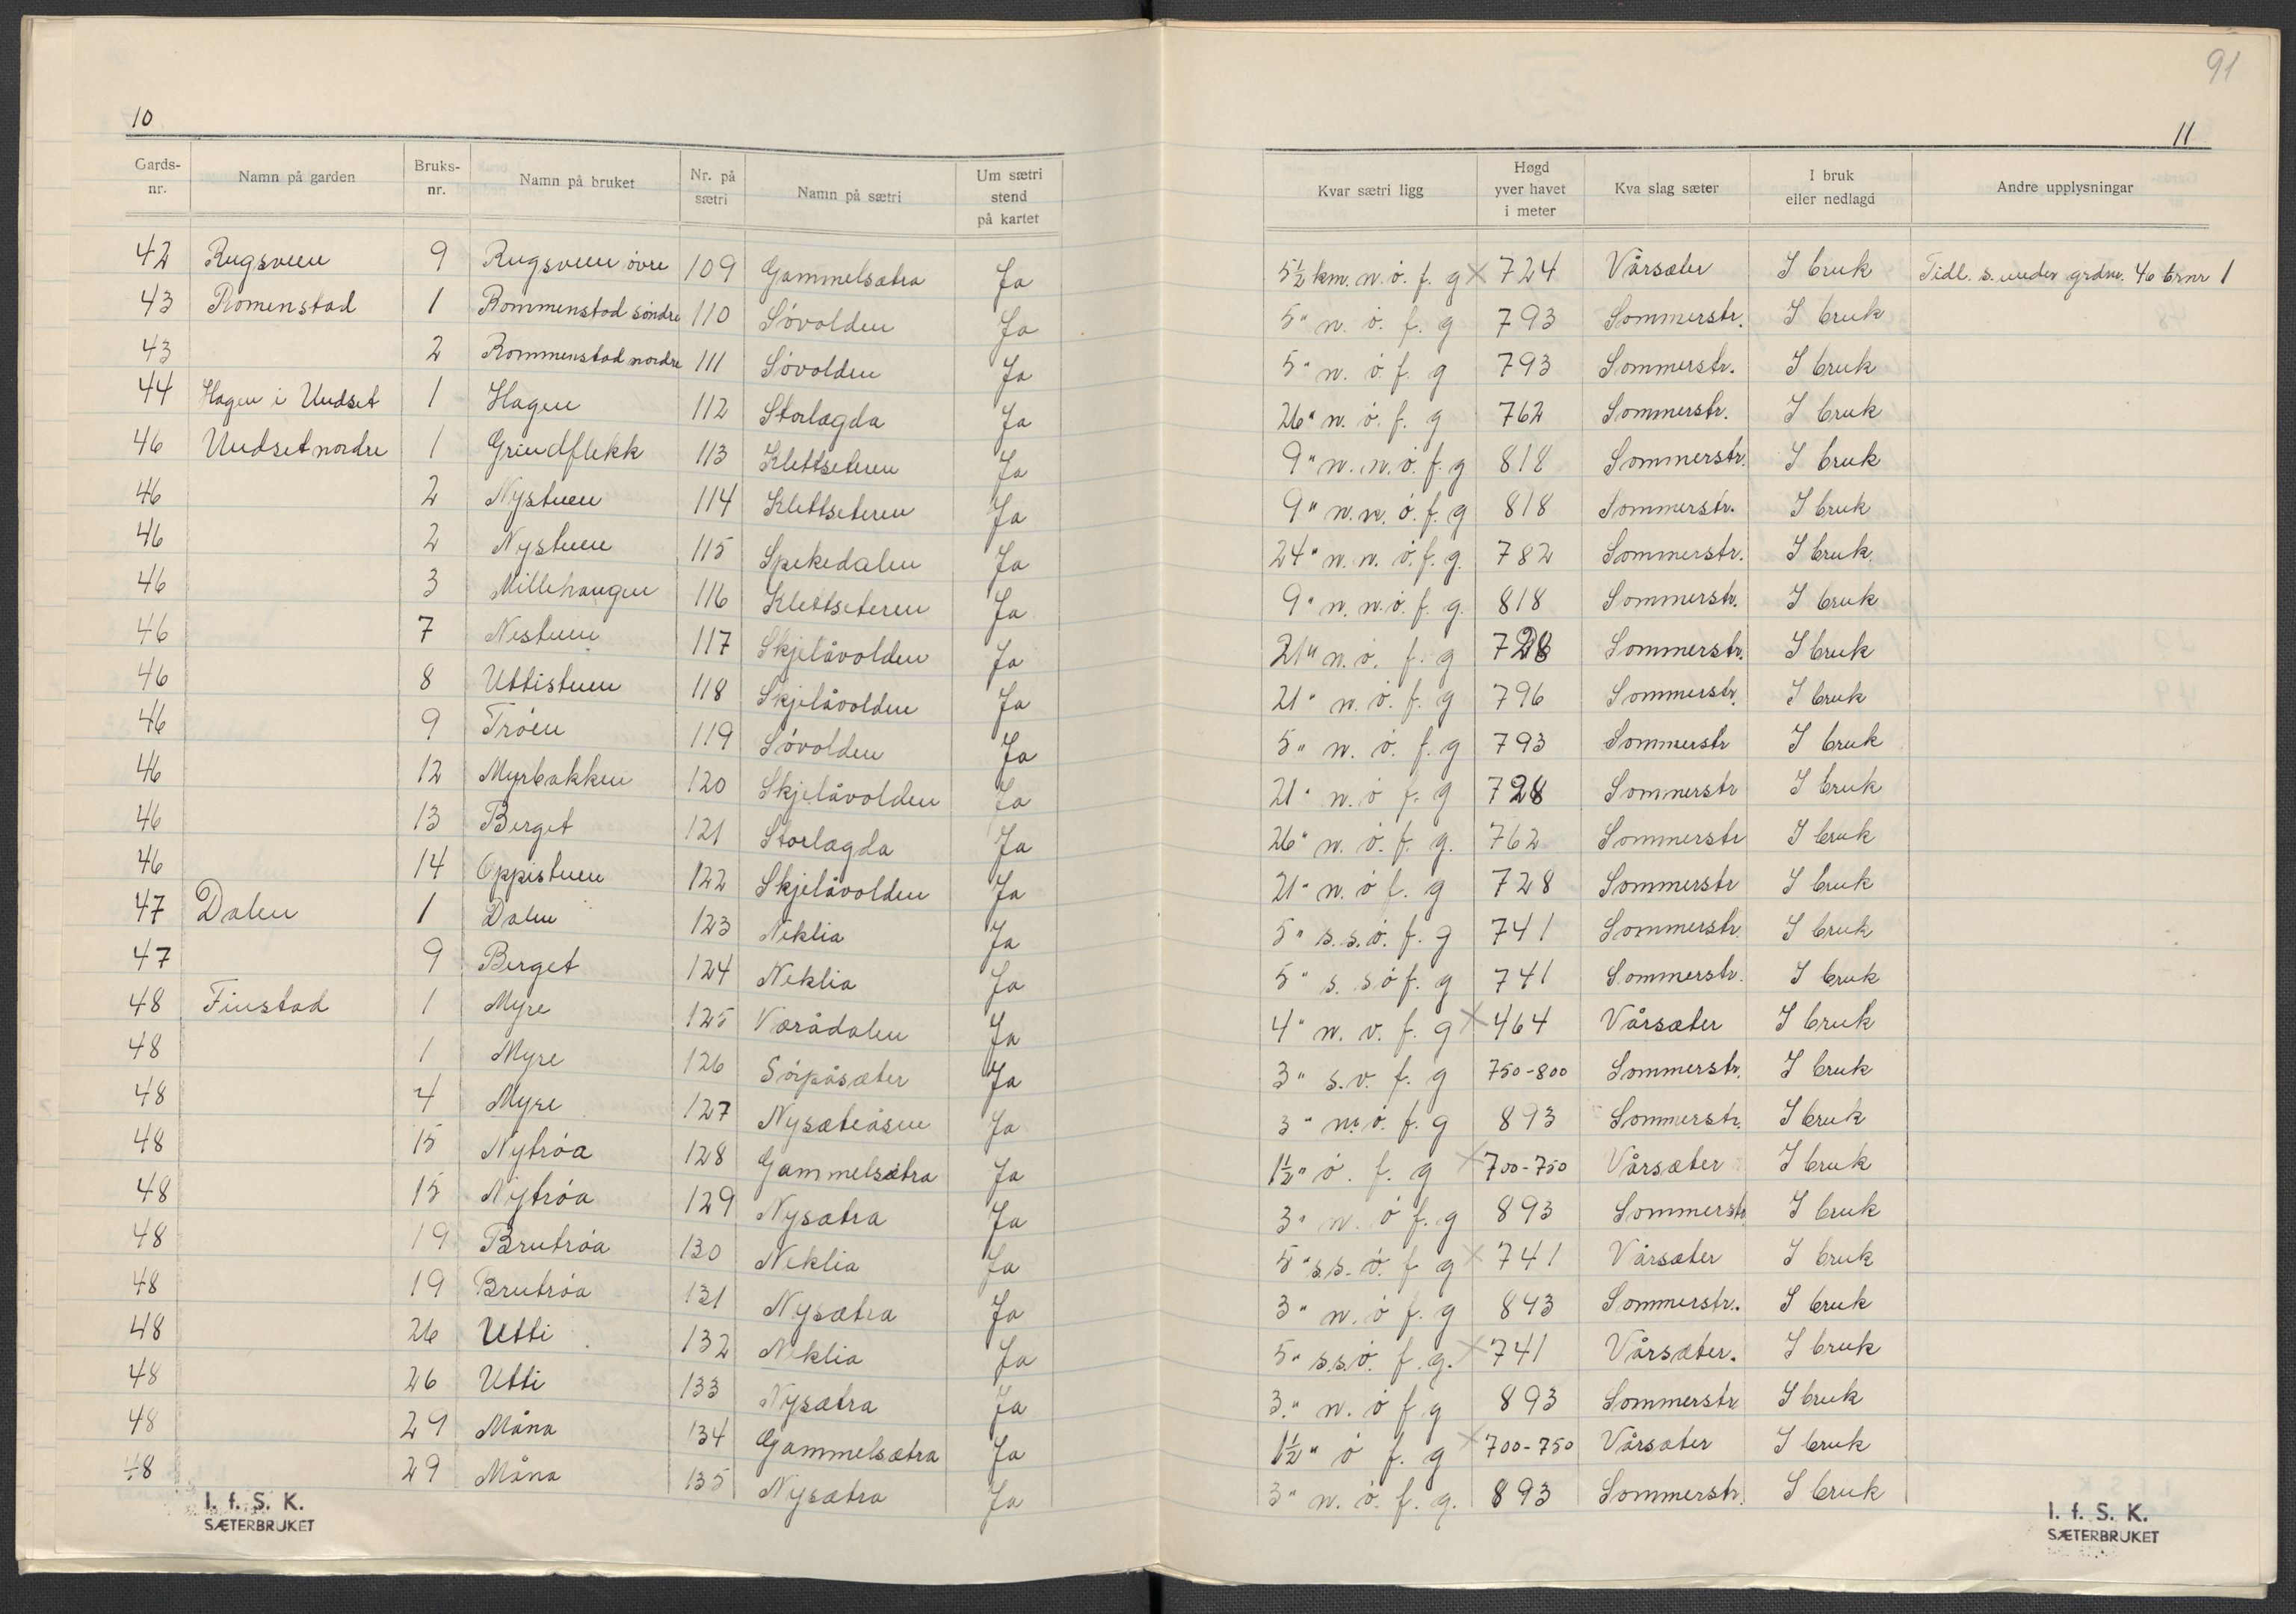 91
10
11
Gards-nr. Namn på garden Bruks-nr. Namn på bruket Nr. på sætri Namn på sætri Um sætri stend på kartet Kvar sætri ligg Høgd yver havet i meter Kva slag sæter I bruk eller nedlagd Andre upplysningar
42 Rugsveen 9 Rugsveen övre 109 Gammelsætra Ja 5½ km. n. ö. f. g × 724 Vårsæter I bruk Tidl. s. under grdnr. 46 brnr 1
43 Romenstad 1 Rommenstad söndre 110 Sövolden Ja 5" n. ö. f. g 793 Sommerstr. I bruk
43 2 Rommenstad nordre 111 Sövolden Ja 5" n. ö. f. g 793 Sommerstr. I bruk
44 Hagen i Undset 1 Hagen 112 Storlægda Ja 26" n. ö. f. g 762 Sommerstr. I bruk
46 Undset nordre 1 Grindflekk 113 Klettseteren Ja 9" n. n. ö. f. g 818 Sommerstr. I bruk
46 2 Nystuen 114 Klettseteren Ja 9" n. n. ö. f. g 818 Sommerstr. I bruk
46 2 Nystuen 115 Spekedalen Ja 24" n. n. ö. f. g. 782 Sommerstr. I bruk.
46 3 Millehaugen 116 Klettseteren Ja 9" n. n. ö. f. g. 818 Sommerstr. I bruk
46 7 Nestuen 117 Skjelåvolden Ja 21" n. ö. f. g 728 Sommerstr. I bruk
46 8 Uttistuen 118 Skjelåvolden Ja 21" n. ö. f. g 796 Sommerstr. I bruk
46 9 Tröen 119 Sövolden Ja 5" n. ö. f. g 793 Sommerstr I bruk
46 12 Myrbakken 120 Skjelåvolden Ja 21" n. ö f. g 728 Sommerstr I bruk
46 13 Berget 121 Storlægda Ja 26" n. ö. f. g. 762 Sommerstr I bruk
46 14 Oppistuen 122 Skjelåvolden Ja 21" n. ö f. g 728 Sommerstr I bruk
47 Dalen 1 Dalen 123 Neklia Ja 5" s. s. ö. f. g 741 Sommerstr. I bruk
47 9 Berget 124 Neklia Ja 5" s. s ö f. g 741 Sommerstr. I bruk
48 Finstad 1 Myre 125 Værådalen Ja 4" n. v. f. g × 464 Vårsæter I bruk
48 1 Myre 126 Sörpåsæter Ja 3" s. v. f. g 750-800 Sommerstr. I bruk
48 4 Myre 127 Nysæteråsen Ja 3" n. ö. f. g 893 Sommerstr. I bruk
48 15 Nytröa 128 Gammelsætra Ja 1½" ö. f. g × 700-750 Vårsæter I bruk
48 15 Nytröa 129 Nysætra Ja 3" n. ö f. g 893 Sommerstr I bruk
48 19 Brutröa 130 Neklia Ja 5" s.s. ö. f g × 741 Vårsæter I bruk
48 19 Brutröa 131 Nysætra Ja 3" n. ö f. g 843 Sommerstr. I bruk
48 26 Utti 132 Neklia Ja 5" s.s.ö. f. g. × 741 Vårsæter. I bruk
48 26 Utti 133 Nysætra Ja 3." n. ö f g 893 Sommerstr I bruk
48 29 Måna 134 Gammelsætra Ja 1½" ö f. g × 700-750 Vårsæter I bruk
48 29 Måna 135 Nysætra Ja 3" n. ö. f. g. 893 Sommerstr. I bruk
I. f. S. K.
SÆTERBRUKET
I. f. S. K.
SÆTERBRUKET